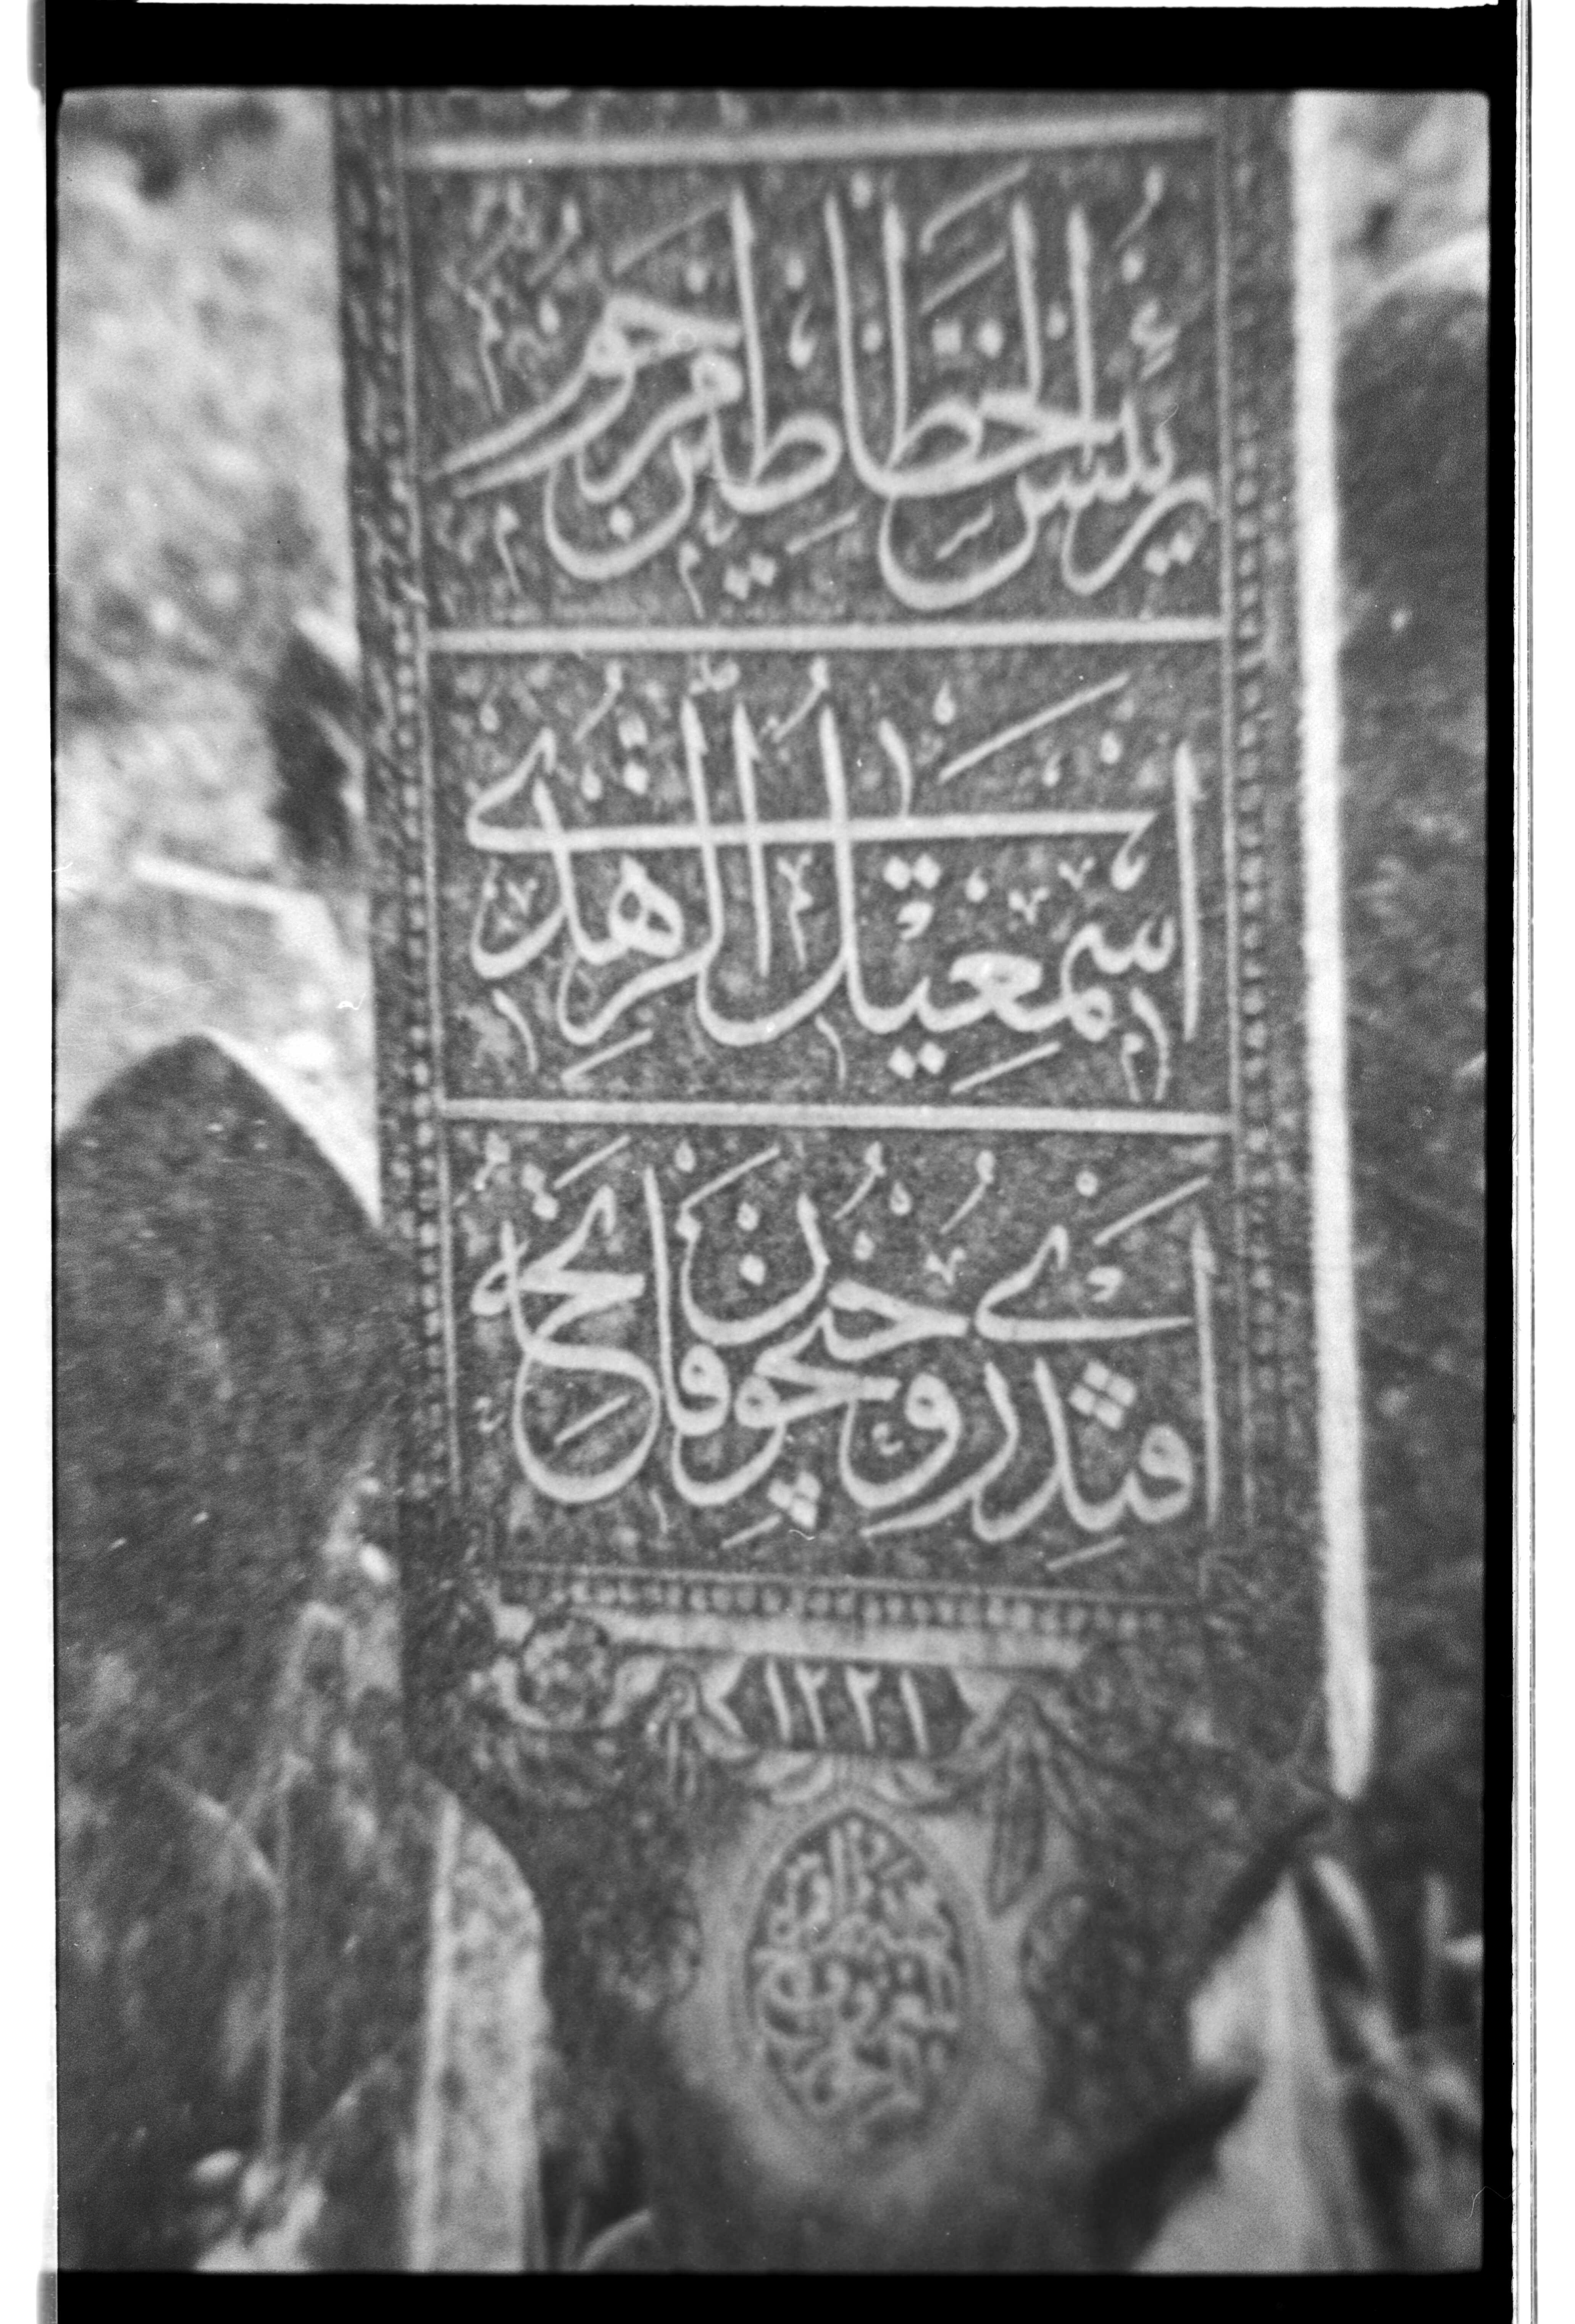 رئيس الخطاطين مرحوم
اسمعيل الزهدى
افندى روحيچون فاتحه
١٢٢١